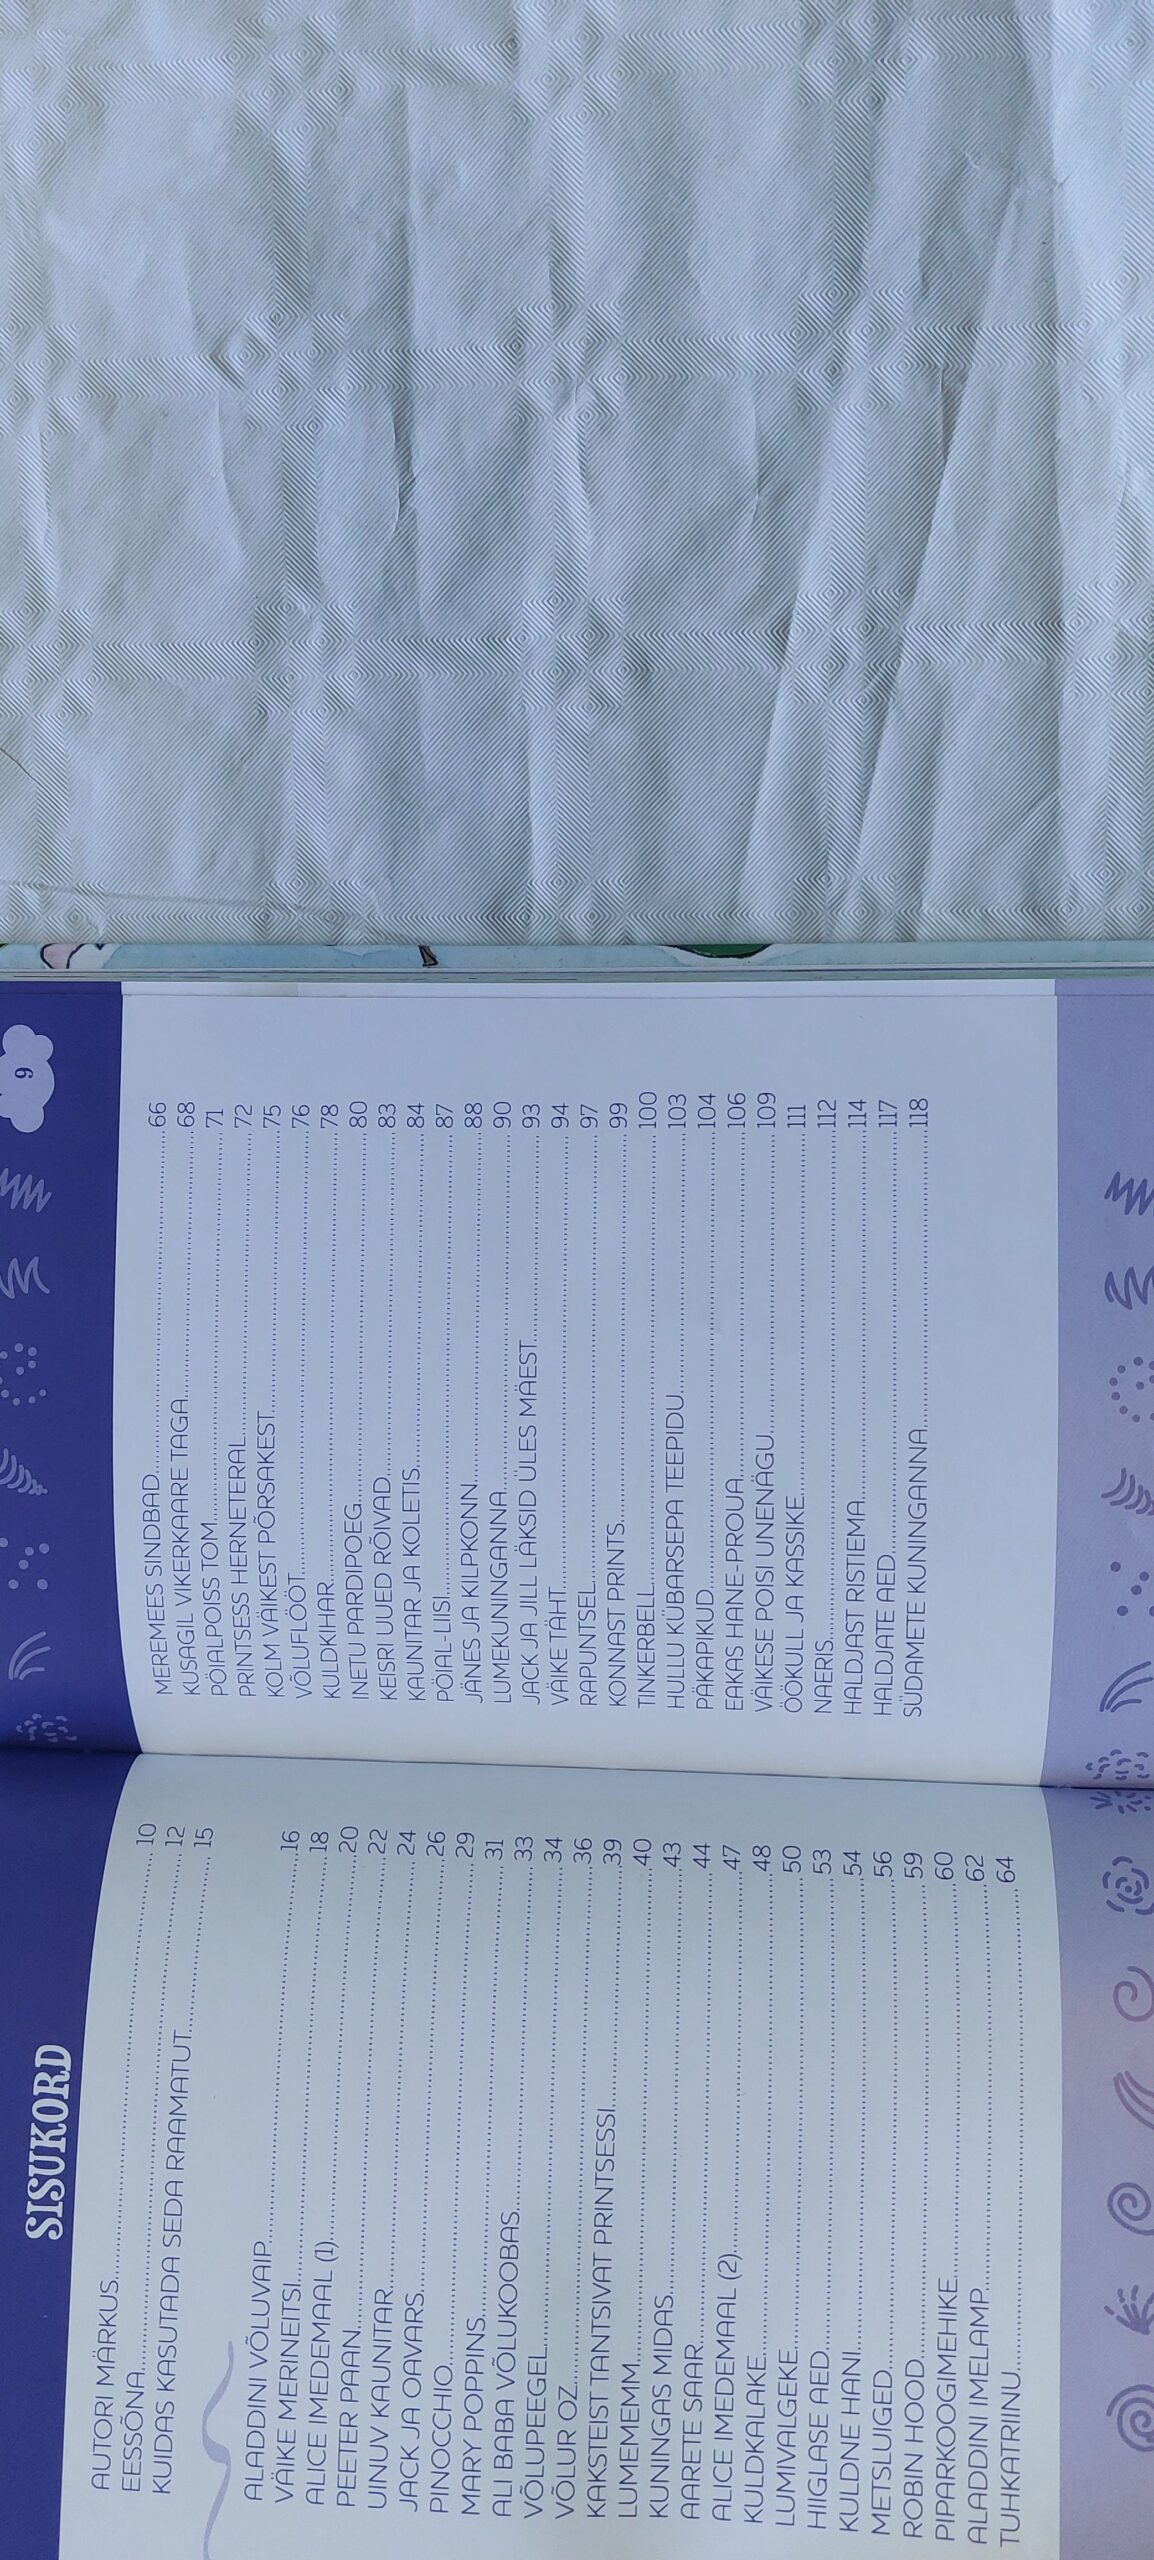 SISUKORD
AUTORI MÄRKUS 10
EESSÕNA 12
KUIDAS KASUTADA SEDA RAAMATUT 15
ALADDINI VÕLUVAIP 16
VÄIKE MERINEITSI 18
ALICE IMEDEMAAL (1) 20
PEETER PAAN 22
UINUV KAUNITAR 24
JACK JA OAVARS 26
PINOCCHIO 29
MARY POPPINS 31
ALI BABA VÕLUKOOBAS 33
VÕLUPEEGEL 34
VÕLUR OZ 36
KAKSTEIST TANTSIVAT PRINTSESSI 39
LUMEMEMM 40
KUNINGAS MIDAS 43
AARETE SAAR 44
ALICE IMEDEMAAL (2) 47
KULDKALAKE 48
LUMIVALGEKE 50
HIIGLASE AED 53
KULDNE HANI 54
METSLUIGED 56
ROBIN HOOD 59
PIPARKOOGIMEHIKE 60
ALADDINI IMELAMP 62
TUHKATRIINU 64
9
MEREMEES SINDBAD 66
KUSAGIL VIKERKAARE TAGA 68
PÖIALPOISS TOM 71
PRINTSESS HERNETERAL 72
KOLM VÄIKEST PÕRSAKEST 75
VÕLUFLÖÖT 76
KULDKIHAR 78
INETU PARDIPOEG 80
KEISRI UUED RÕIVAD 83
KAUNITAR JA KOLETIS 84
PÖIAL-LIISI 87
JÄNES JA KILPKONN 88
LUMEKUNINGANNA 90
JACK JA JILL LÄKSID ÜLES MÄEST 93
VÄIKE TÄHT 94
RAPUNTSEL 97
KONNAST PRINTS 99
TINKERBELL 100
HULLU KÜBARSEPA TEEPIDU 103
PÄKAPIKUD 104
EAKAS HANE-PROUA 106
VÄIKESE POISI UNENÄGU 109
ÖÖKULL JA KASSIKE 111
NAERIS 112
HALDJAST RISTIEMA 114
HALDJATE AED 117
SÜDAMETE KUNINGANNA 118